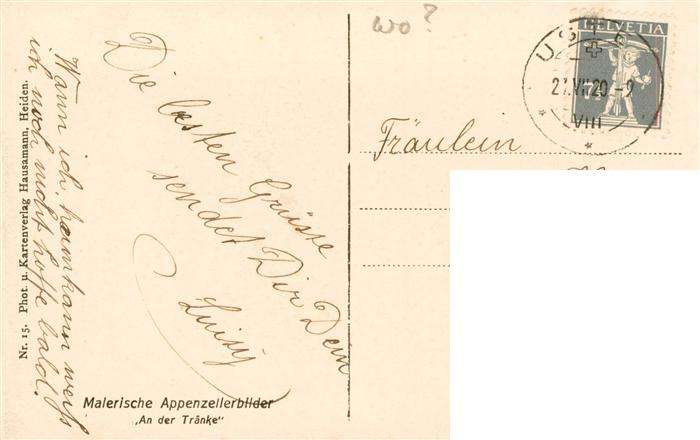 wo?
HELVETIA
27.VII.20-9
VIII
Fräulein
Die besten Grüsse
sendet Dir Dein
Luisy
Wann ich heimkann weiss
ich noch nicht hoffe bald.
Nr. 15. Phot. u. Kartenverlag Hausamann, Heiden.
Malerische Appenzellerbilder
„An der Tränke"